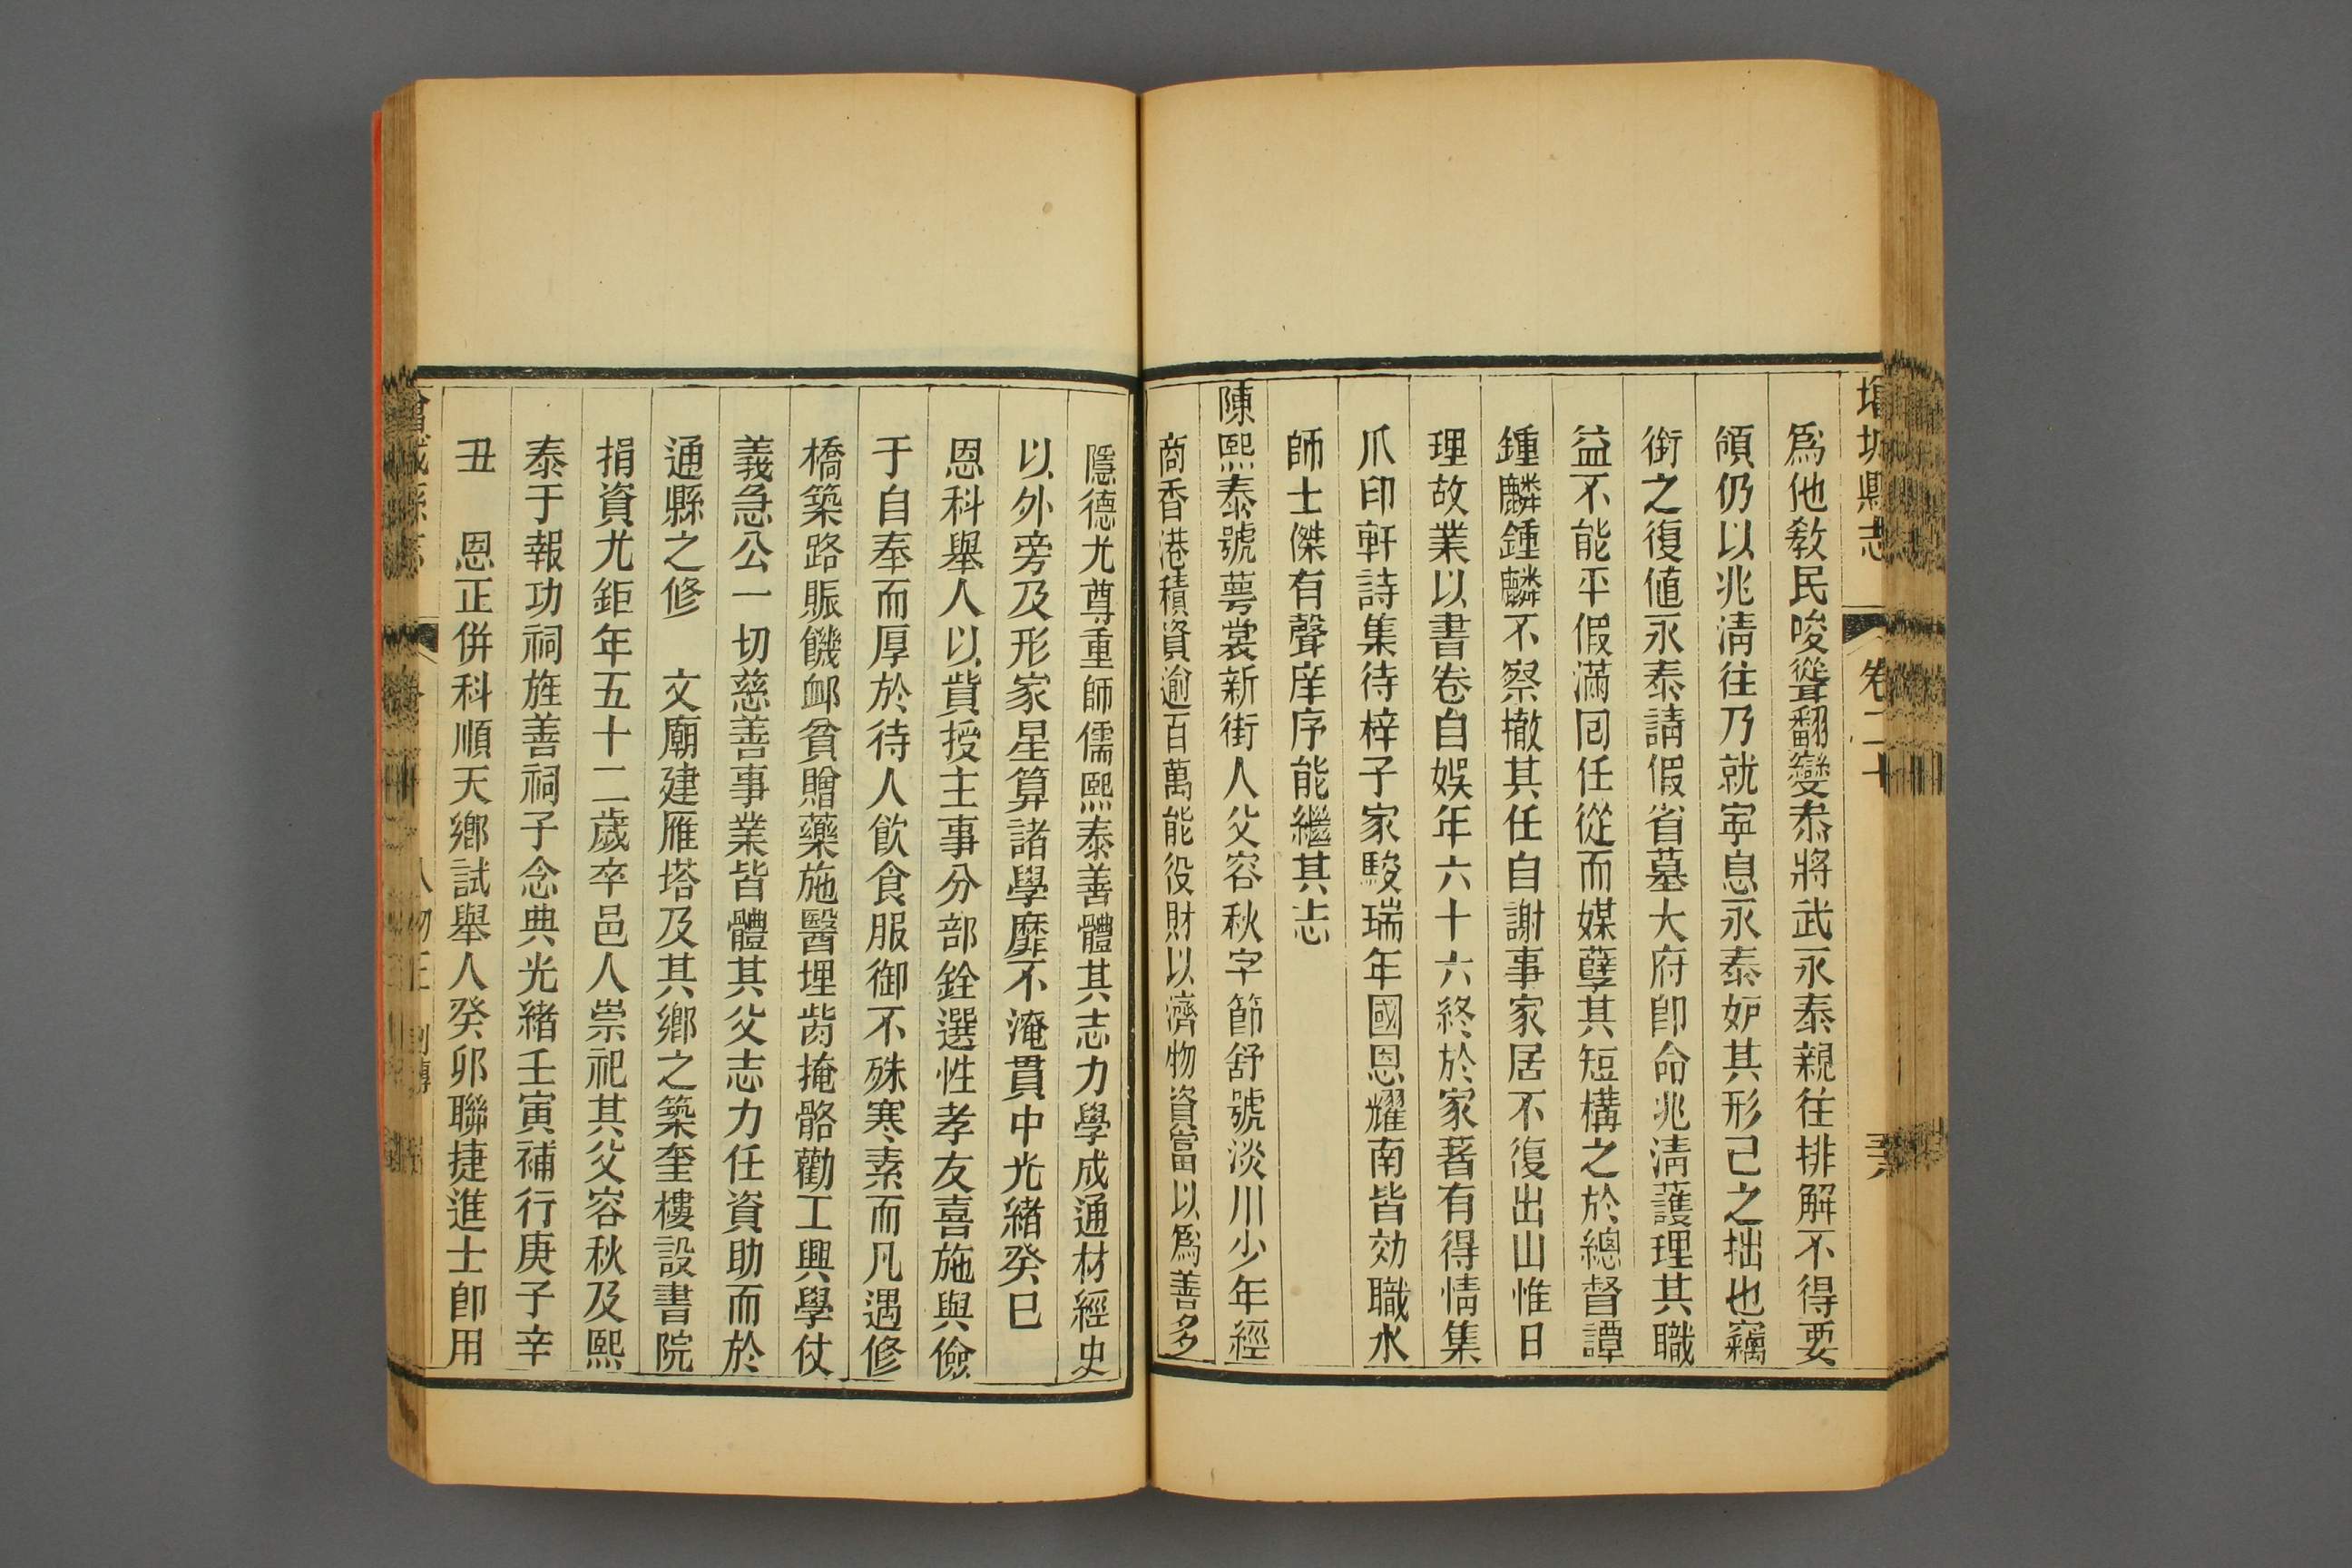 增城縣志
卷二十
爲他教民唆聳翻變叅將武永泰親往排解不得要
領仍以兆清往乃就寜息永泰妒其形己之拙也竊
銜之復値永泰請假省墓大府卽命兆淸護理其職
益不能平假滿囘任從而媒孽其短構之於總督譚
鍾麟鍾麟不察撤其任自謝事家居不復出山惟日
理故業以書卷自娛年六十六終於家著有得情集
爪印軒詩集待梓子家駿瑞年國恩耀南皆効職水
師士傑有聲庠序能繼其志
陳熙泰號蕚裳新街人父容秋字節舒號淡川少年經
商香港積資逾百萬能役財以濟物資富以爲善多
隱德尤尊重師儒熙泰善體其志力學成通材經史
以外旁及形家星算諸學靡不淹貫中光緒癸巳
恩科舉人以貲授主事分部銓選性孝友喜施與儉
于自奉而厚於待人飮食服御不殊寒素而凡遇修
橋築路賑饑卹貧贈藥施醫埋胔掩骼勸工興學仗
義急公一切慈善事業皆體其父志力任資助而於
通縣之修　文廟建雁塔及其鄉之築奎樓設書院
捐資尤鉅年五十二歲卒邑人崇祀其父容秋及熙
泰于報功祠旌善祠子念典光緒壬寅補行庚子辛
丑　恩正併科順天鄉試舉人癸卯聯捷進士卽用